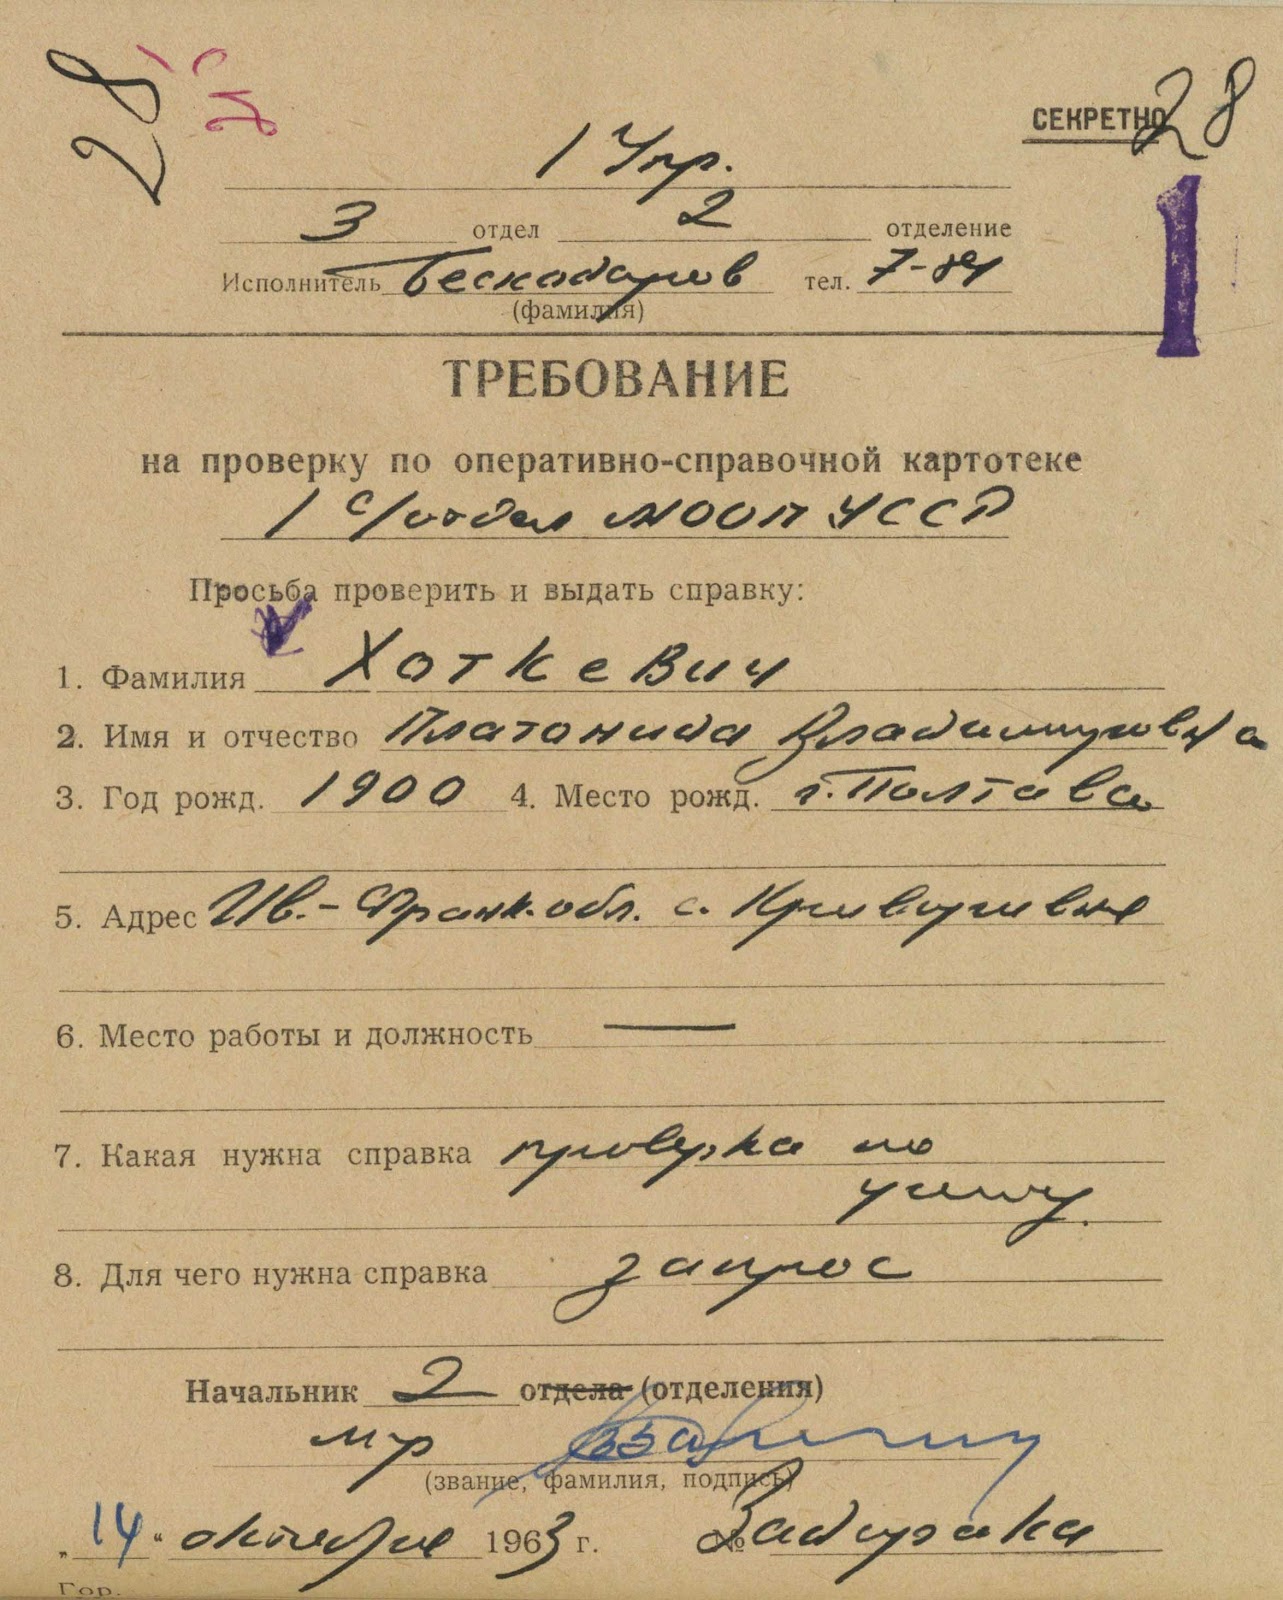 28
СЕКРЕТНО 28
1 Упр.
1
3 отдел 2 отделение
Исполнитель Бескодаров тел. 7-84
(фамилия)
ТРЕБОВАНИЕ
на проверку по оперативно-справочной картотеке
1 с/отдел МООП УССР
Просьба проверить и выдать справку:
1. Фамилия Хоткевич
2. Имя и отчество Платонида Владимировна
3. Год рожд. 1900 4. Место рожд. г. Полтава
5. Адрес Ив.-Франк. обл. с.
6. Место работы и должность —
7. Какая нужна справка проверка по
учету.
8. Для чего нужна справка запрос
Начальник 2 отдела (отделения)
м-р
(звание, фамилия, подпись)
„14“ октября 1963 г. № Задирака
Гор.